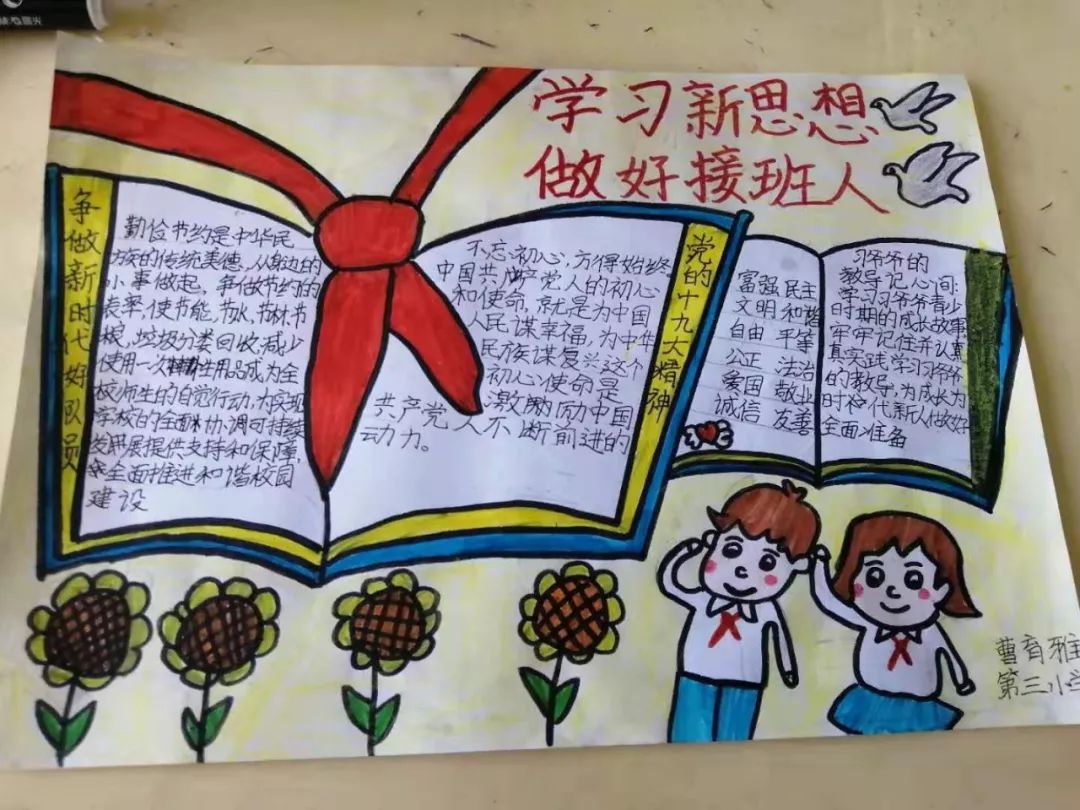 学习新思想
做好接班人
争做新时代好队员
勤俭节约是中华民
族的传统美德,从身边的
小事做起,争做节约的
表率,使节能、节水、节材、节
粮、垃圾分类回收,减少
使用一次性用品成为全
校师生的自觉行动,为实现
学校的全面协调可持续
发展提供支持和保障,
全面推进和谐校园
建设
不忘初心,方得始终,
中国共产党人的初心
和使命,就是为中国
人民谋幸福,为中华
民族谋复兴这个
初心使命是
激励中国
共产党人不断前进的
动力。
党的十九大精神
富强 民主
文明 和谐
自由 平等
公正 法治
爱国 敬业
诚信 友善
习爷爷的
教导记心间:
学习习爷爷青少
时期的成长故事
牢牢记住并认真
真实践学习习爷爷
的教导,为成长为
时代新人做好
全面准备
曹育雅
第三小学